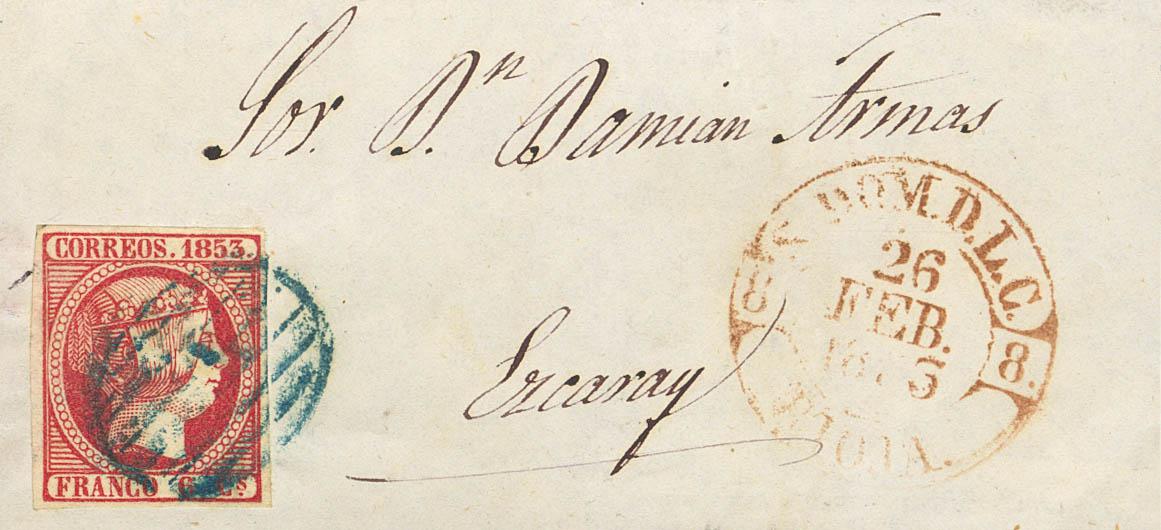 Sor. Dn. Damian Armas
Ezcaray
CORREOS. 1853.
FRANCO 6 Cs
S. DOM. D. L. C.
26
FEB.
8
8.
RIOJA.